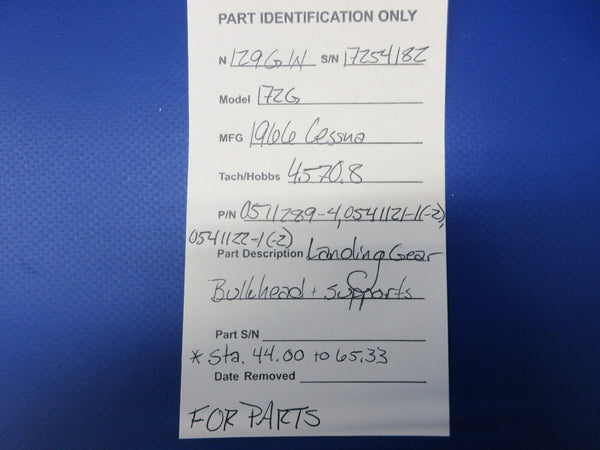 PART IDENTIFICATION ONLY
N 129GW S/N 17254182
Model 172G
MFG 1966 Cessna
Tach/Hobbs 4570.8
P/N 0511289-4, 0541121-1(-2),
0541122-1(-2)
Part Description Landing Gear
Bulkhead + supports
Part S/N
* Sta. 44.00 to 65.33
Date Removed
FOR PARTS